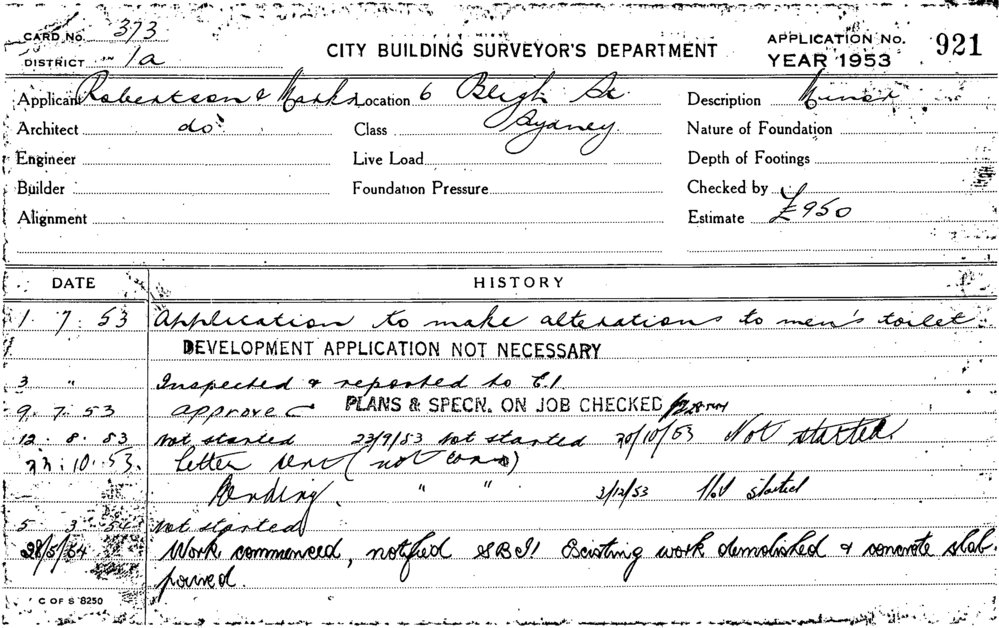 CARD No. 373
DISTRICT 1a
CITY BUILDING SURVEYOR'S DEPARTMENT
APPLICATION No. 921
YEAR 1953
Applicant Robertson & Marks Location 6 Bligh St. Description Minor
Architect do. Class Sydney Nature of Foundation
Engineer Live Load Depth of Footings
Builder Foundation Pressure Checked by
Alignment Estimate £950
DATE HISTORY
1. 7. 53 Application to make alterations to men's toilet
DEVELOPMENT APPLICATION NOT NECESSARY
3 " Inspected & reported to E.I.
9. 7. 53 approved PLANS & SPECN. ON JOB CHECKED
12. 8. 53 Not started 23/9/53 Not started 20/10/53 Not started.
10. 53. Letter sent (not
Pending. " " 3/12/53 Not started
5 3 54 Not started
28/5/54 Work commenced, notified Existing work demolished & concrete slab
poured.
C OF S 8250